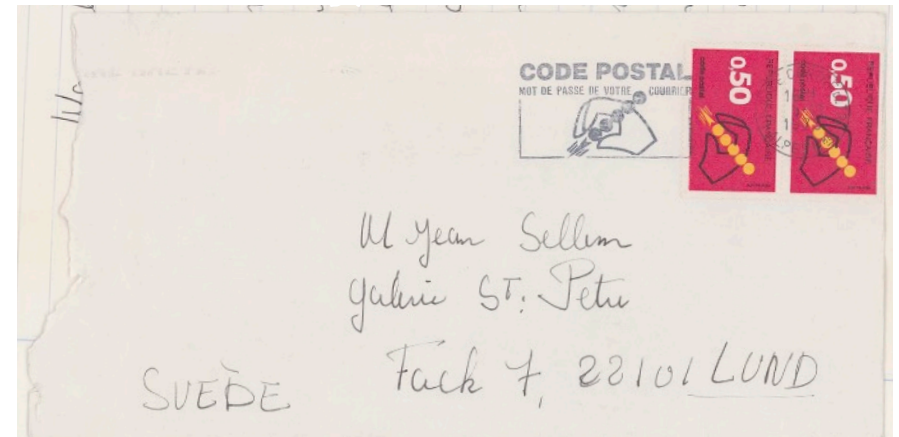 CODE POSTAL
MOT DE PASSE DE VOTRE COURRIER
0,50
REPUBLIQUE FRANCAISE
0,50
REPUBLIQUE FRANCAISE
M Jean Sellem
Galerie ST. Petri
Fack 7, 22101 LUND
SUÈDE